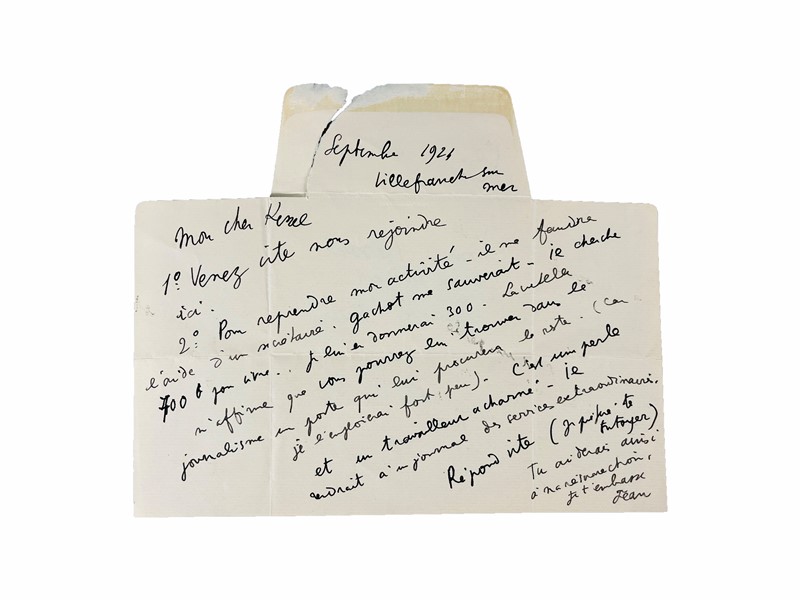 Septembre 1926
Villefranche sur
mer
Mon cher Kessel
1º Venez vite nous rejoindre
ici.
2º. Pour reprendre mon activité - il me faudra
l'aide d'un secrétaire. Gachot me sauverait - je cherche
700 f pour vivre.. Je lui en donnerai 300. Lavitella
m'affirme que vous pourrez lui trouver dans le
journalisme un poste qui lui procurera le reste. (Car
je l'emploierai fort peu). C'est une perle
et un travailleur acharné - Je
rendrait à un journal des services extraordinaires.
Répond vite (Je préfère te
tutoyer)
Tu aiderais ainsi
à ma résurrection.
Je t'embrasse
Jean